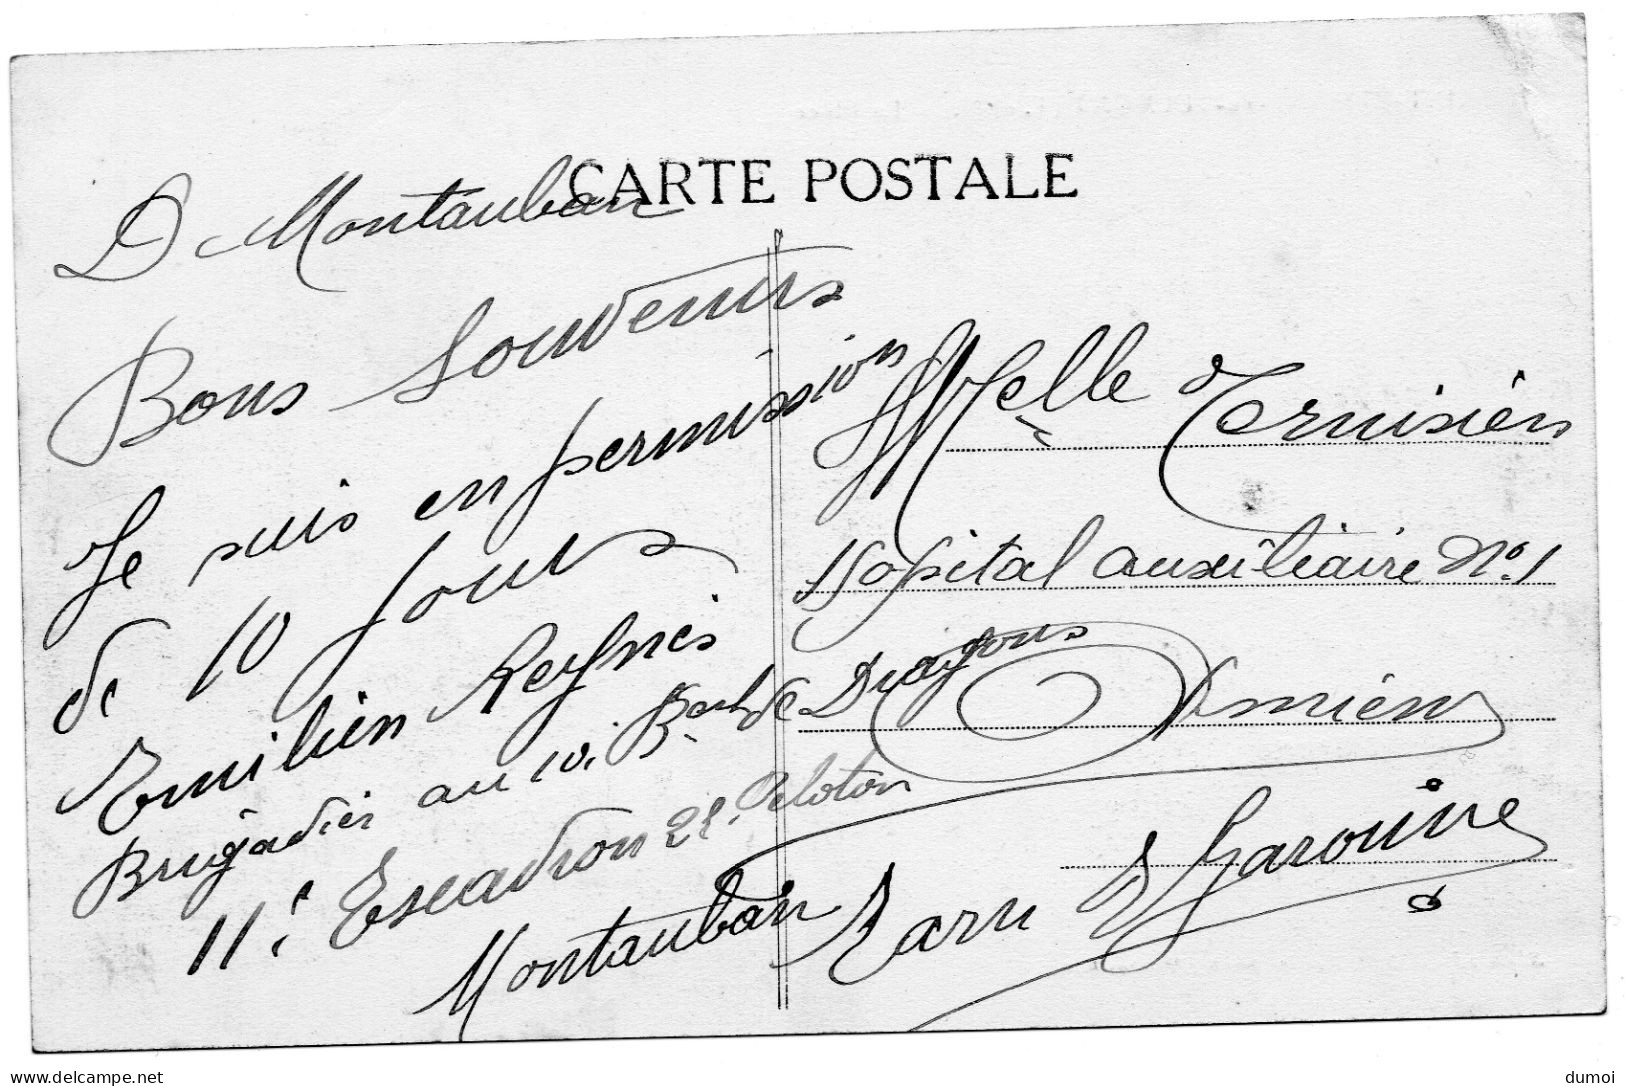 CARTE POSTALE
De Montauban
Bons Souvenirs
Je suis en permissions
de 10 jours
Emilien Reynès
Brigadier au 10e de Dragons
11e Escadron 2e Peloton
Montauban Tarn & Garonne
Melle Ternisien
Hopital auxiliaire No 1
Amiens
www.delcampe.net
dumoi